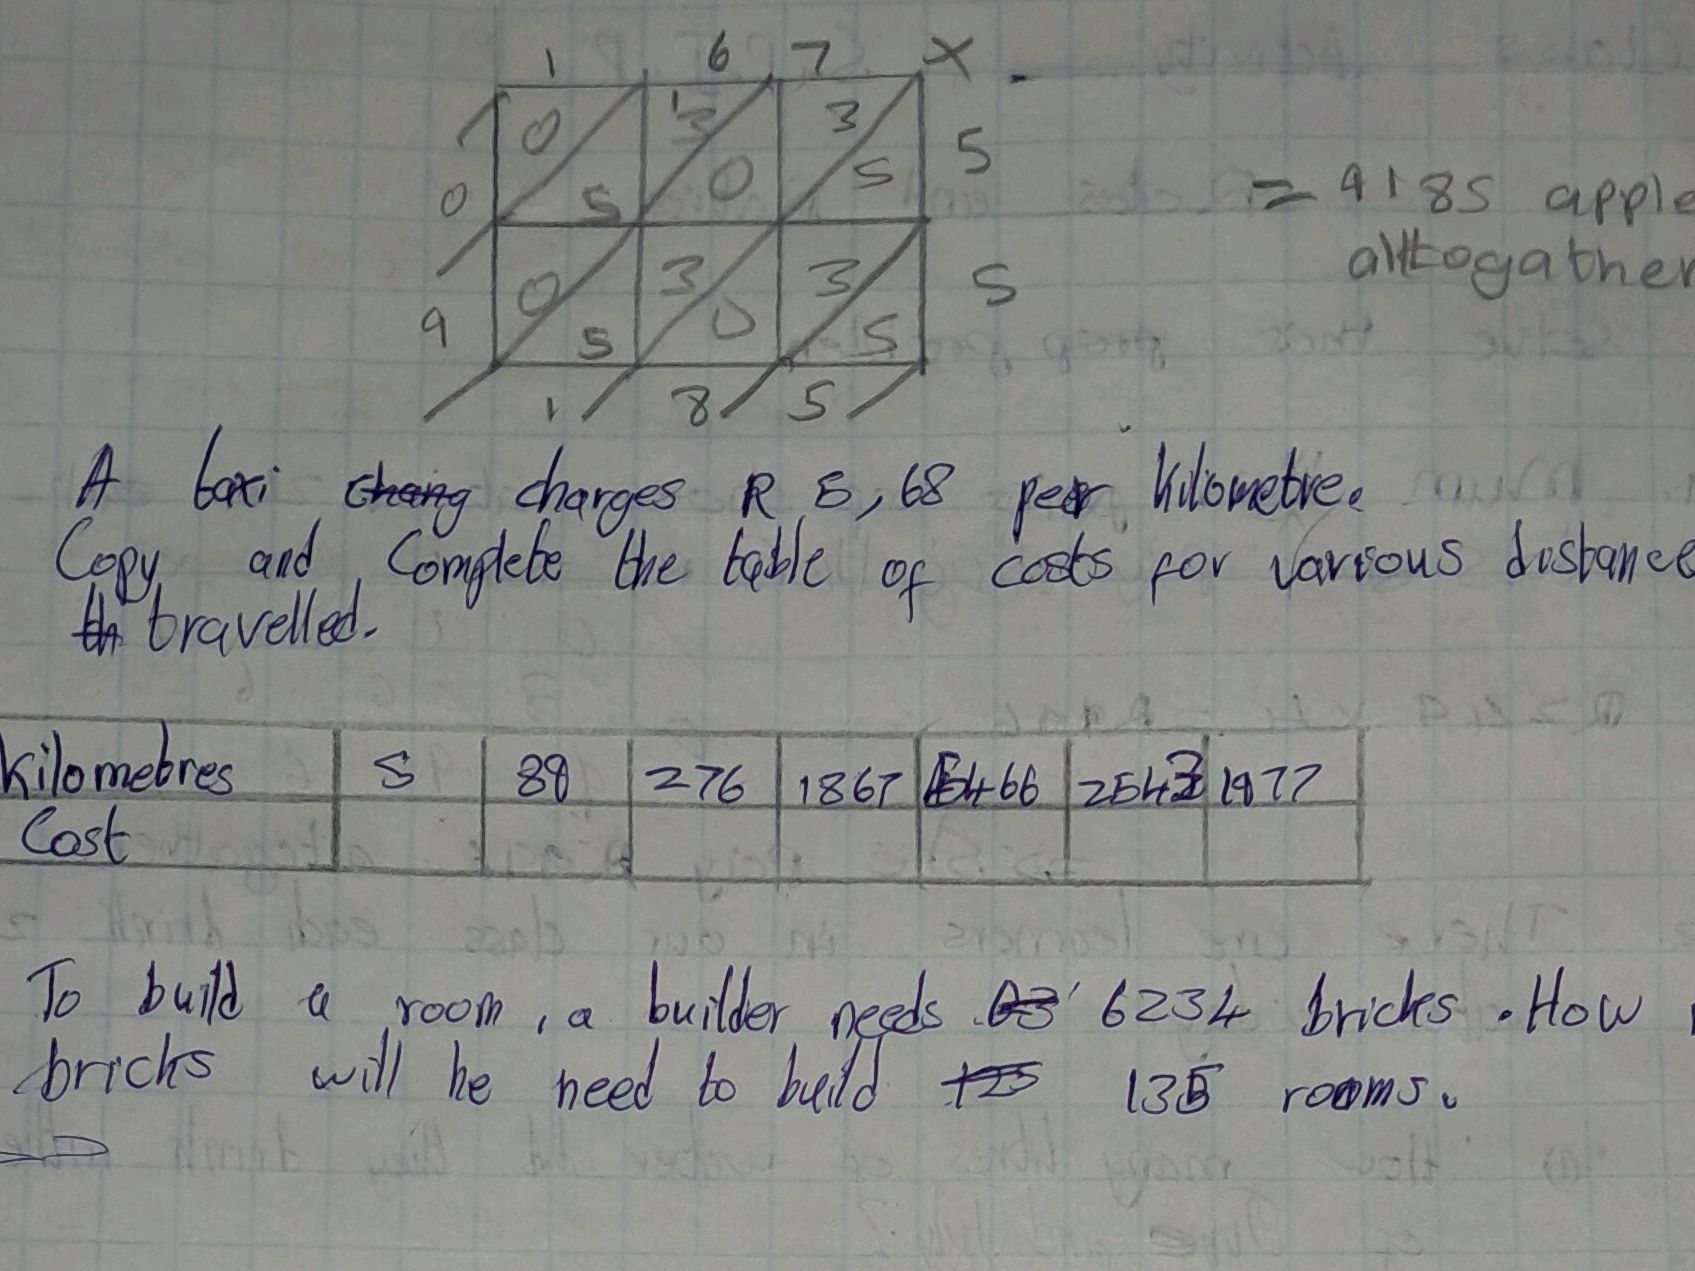 1 6 7 X
0 3 3 5
0 5 0 5
0 3 3 5
9 5 0 5
1 8 5
= 9185 apple
alltogather
A taxi charges R 5,68 per kilometre.
Copy and Complete the table of costs for various distance
travelled.
Kilometres 5 89 276 1867 5466 2543 1977
Cost
To build a room, a builder needs 6234 bricks. How
bricks will he need to build 135 rooms.